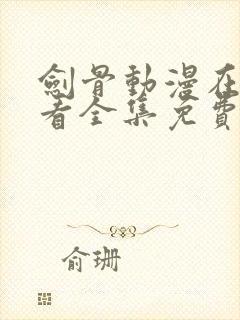 劍骨動漫在
看全集免費
俞珊